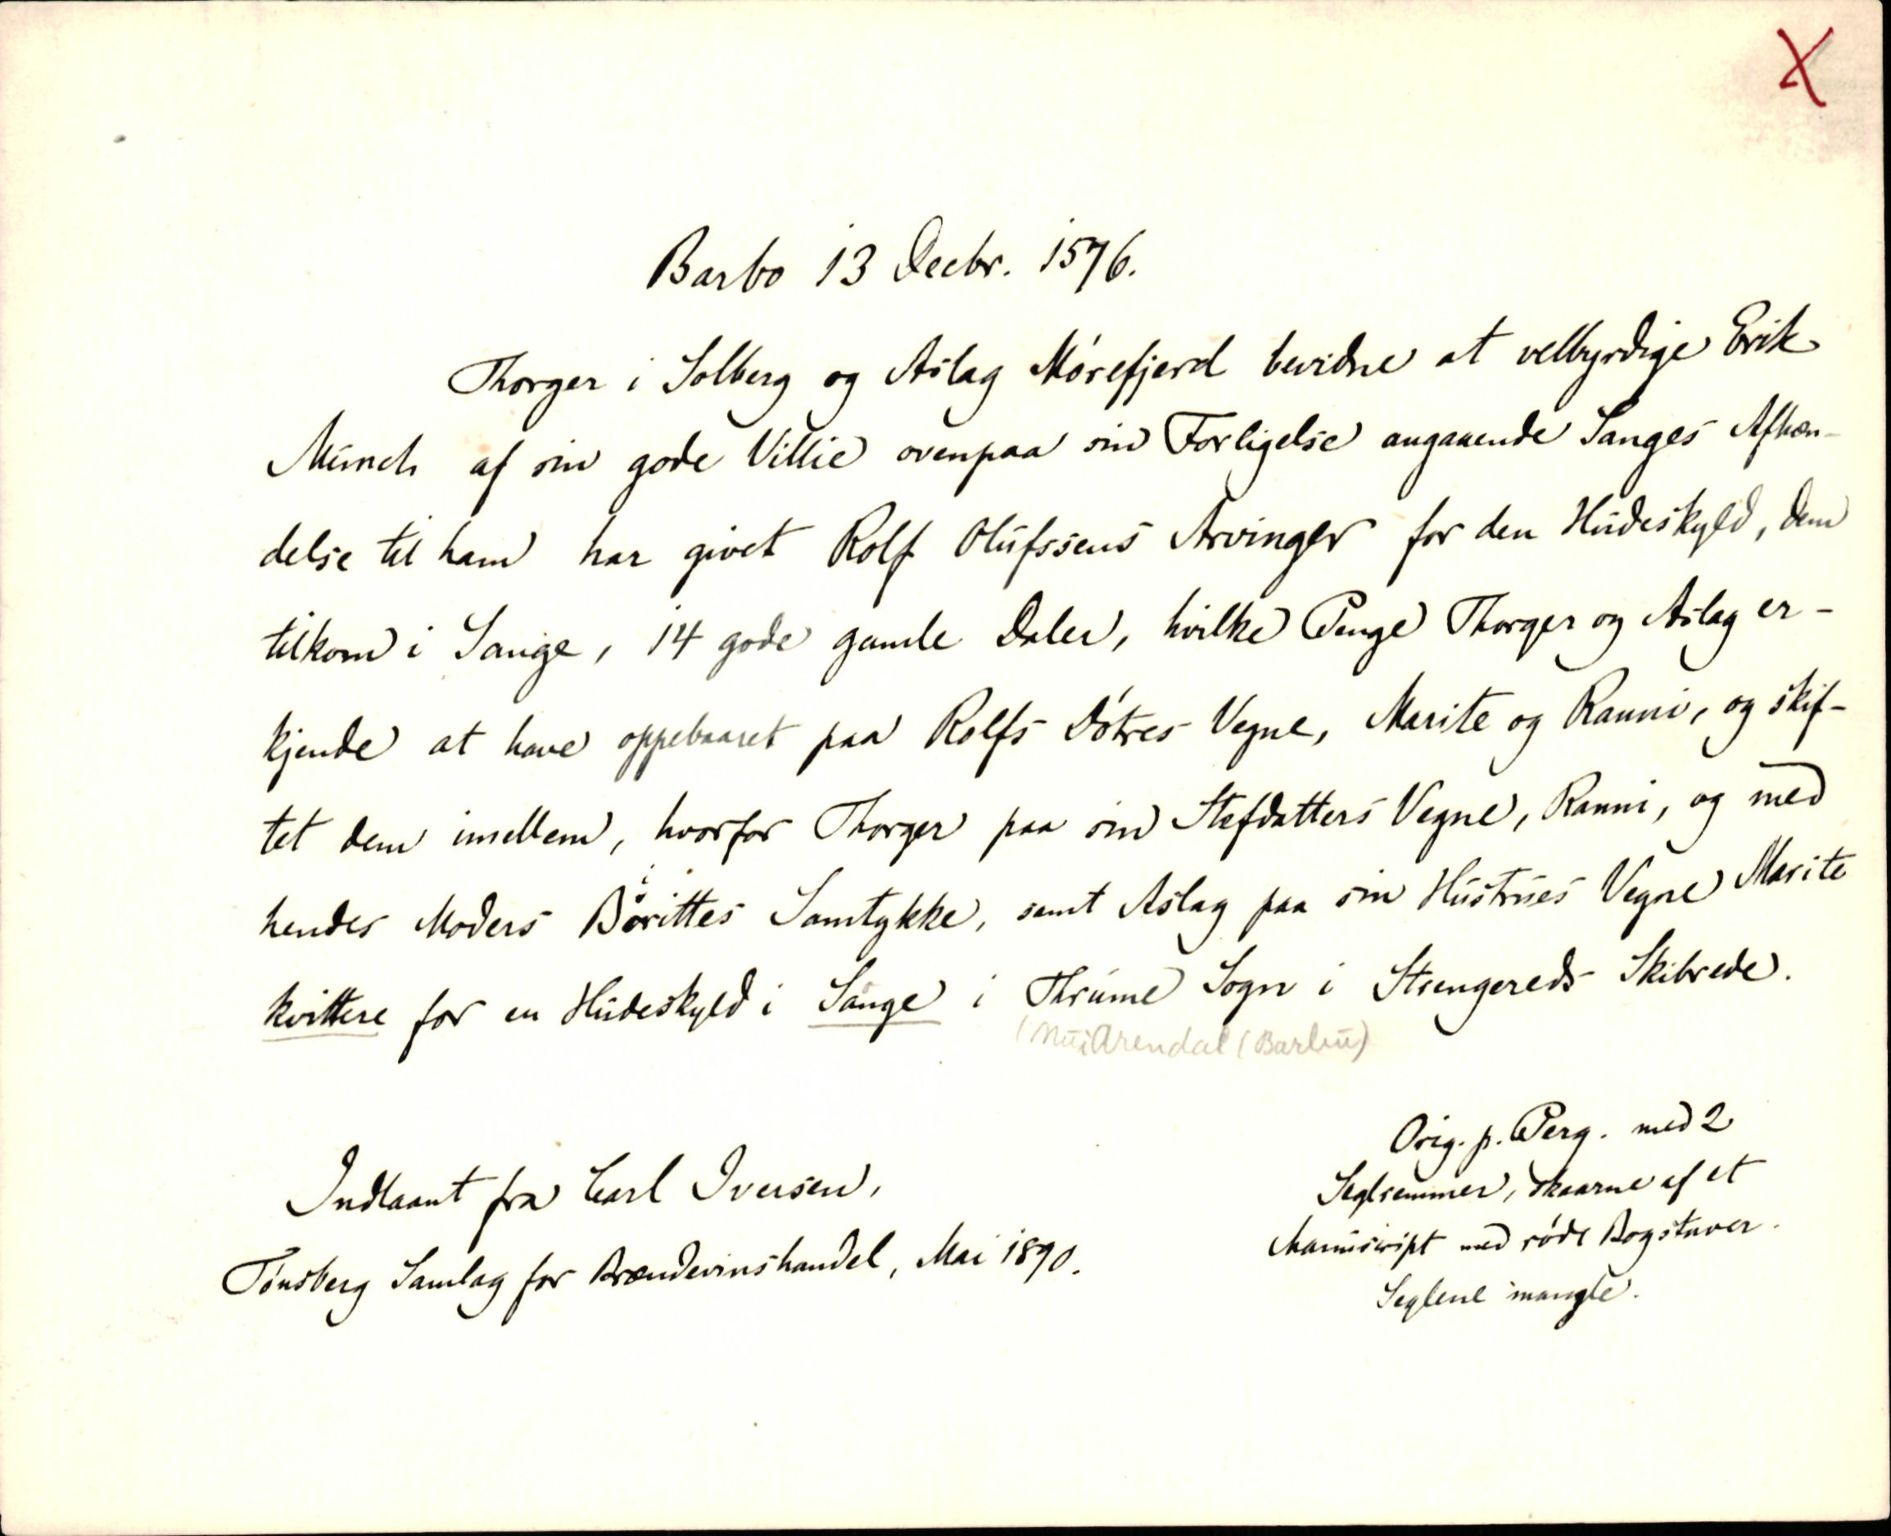 X
Barbo 13 Decbr. 1576.
Thorger i Solberg og Aslag Mórefjerd bevidne at velbyrdige Erik
Munch af sin gode Villie ovenpaa sin Forligelse angaaende Sanges Afhæn-
delse til ham har givet Rolf Olufssens Arvinger for den Hudeskyld, dem
tilkom i Sange, 14 gode gamle Daler, hvilke Penge Thorger og Aslag er-
kjende at have oppebaaret paa Rolfs Dótres Vegne, Marite og Ranni, og skif-
tet dem imellem, hvorfor Thorger paa sin Stefdatters Vegne, Ranni, og med
hendes Moders Börittes Samtykke, samt Aslag paa sin Hustrues Vegne Marite
kvittere for en Hudeskyld i Sange i Thrume Sogn i Strengereds Skibrede.
(Nu i Arendal (Barbu)
Orig. p. Perg. med 2
Seglremmer, skaarne af et
Manuscript med róde Bogstaver.
Seglene mangle.
Indlaant fra Carl Iversen,
Tónsberg Samlag for Brændevinshandel, Mai 1890.